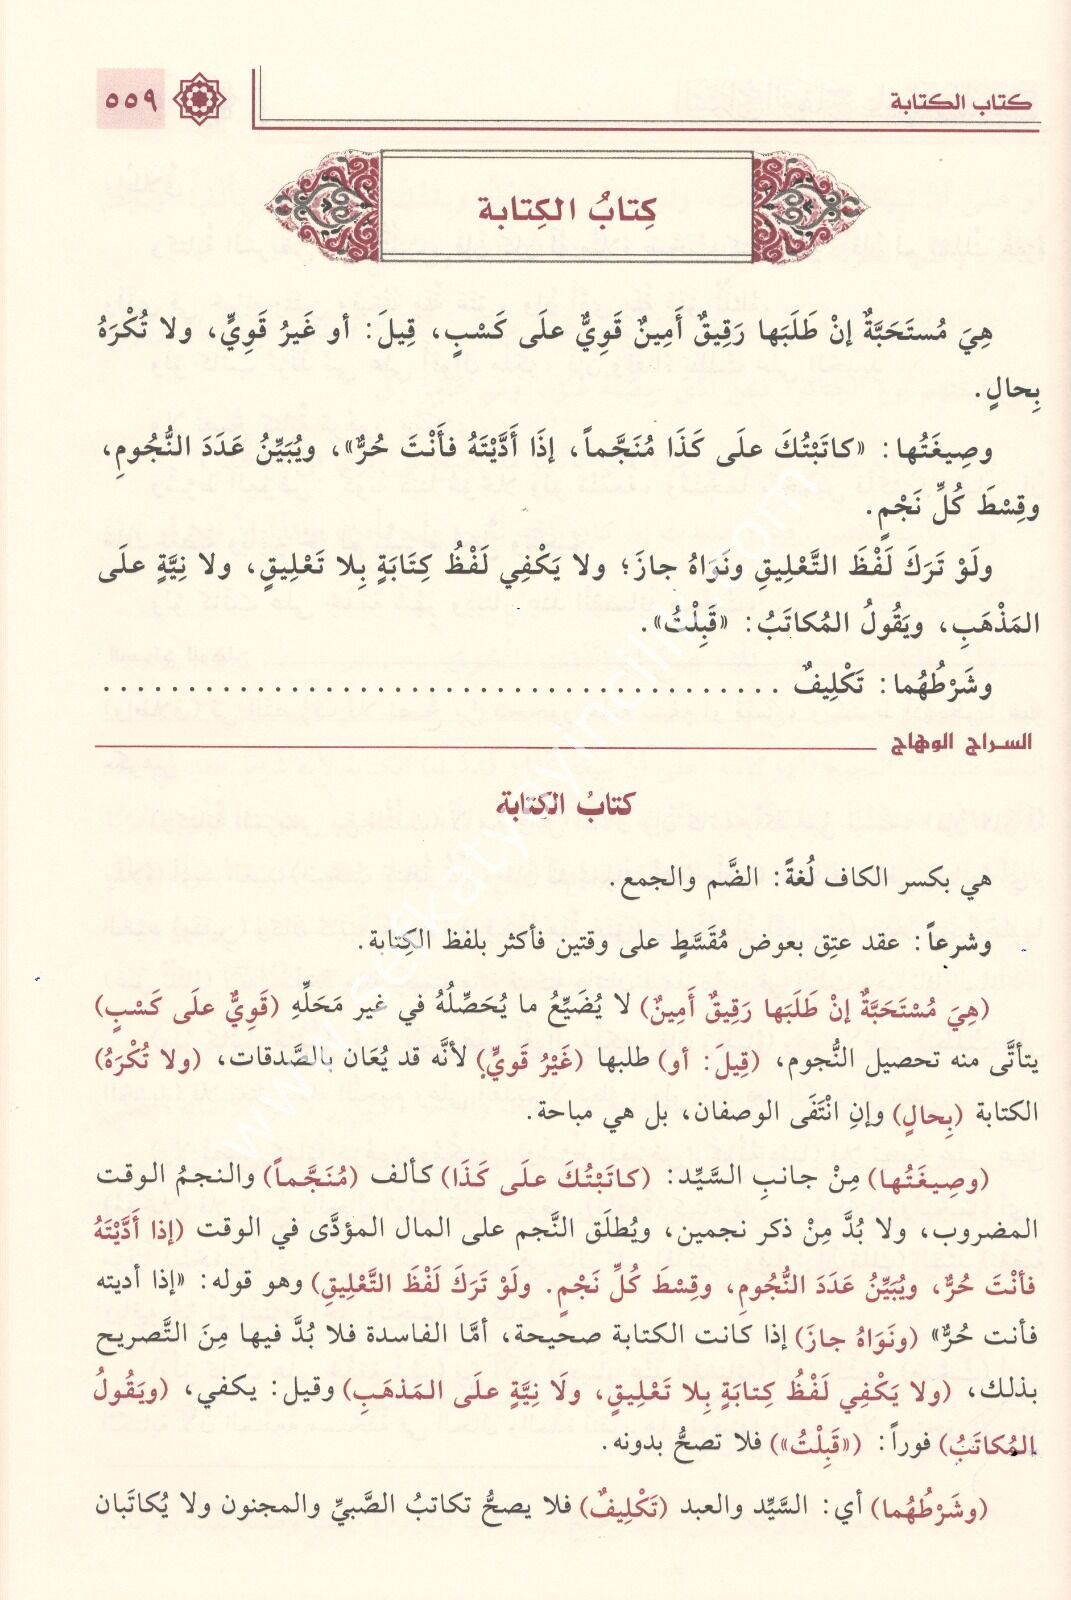 كتاب الكتابة
٥٥٩
كِتابُ الكِتابة
هِيَ مُستَحَبَّةٌ إنْ طَلَبَها رَقِيقٌ أَمِينٌ قَوِيٌّ علَى كَسْبٍ، قِيلَ: أو غَيرُ قَوِيٍّ، ولا تُكْرَهُ
بِحالٍ.
وصِيغَتُها: «كاتَبْتُكَ علَى كَذَا مُنَجَّماً، إذَا أَدَّيْتَهُ فأَنْتَ حُرٌّ»، ويُبَيِّنُ عَدَدَ النُّجُومِ،
وقِسْطَ كُلِّ نَجْمٍ.
ولَوْ تَرَكَ لَفْظَ التَّعْلِيقِ ونَوَاهُ جازَ؛ ولا يَكْفِي لَفْظُ كِتَابَةٍ بِلا تَعْلِيقٍ، ولا نِيَّةٍ علَى
المَذْهَبِ، ويَقُولُ المُكاتَبُ: «قَبِلْتُ».
وشَرْطُهُما: تَكْلِيفٌ ........................................
السراج الوهاج
كتابُ الكِتابة
هي بكسر الكاف لُغةً: الضَّم والجمع.
وشرعاً: عقد عتِق بعوض مُقَسَّطٍ على وقتين فأكثر بلفظ الكِتابة.
(هِيَ مُسْتَحَبَّةٌ إنْ طَلَبَها رَقِيقٌ أَمِينٌ) لا يُضَيِّعُ ما يُحَصِّلُهُ في غير مَحَلِّهِ (قَوِيٌّ علَى كَسْبٍ)
يتأتَّى منه تحصيل النُّجوم، (قِيلَ: أو) طلبها (غَيْرُ قَوِيٍّ) لأنَّه قد يُعَان بالصَّدقات، (ولا تُكْرَهُ)
الكتابة (بِحالٍ) وإنِ انْتَفَى الوصفان، بل هي مباحة.
(وصِيغَتُها) مِنْ جانبِ السَّيِّد: (كاتَبْتُكَ علَى كَذَا) كألف (مُنَجَّماً) والنجمُ الوقت
المضروب، ولا بُدَّ مِنْ ذكر نجمين، ويُطلَق النَّجم على المال المؤدَّى في الوقت (إذا أَدَّيْتَهُ
فأنْتَ حُرٌّ، ويُبَيِّنُ عَدَدَ النُّجُومِ، وقِسْطَ كُلِّ نَجْمٍ. ولَوْ تَرَكَ لَفْظَ التَّعْلِيقِ) وهو قوله: «إذا أديته
فأنت حُرٌّ» (ونَوَاهُ جازَ) إذا كانت الكتابة صحيحة، أمَّا الفاسدة فلا بُدَّ فيها مِنَ التَّصريح
بذلك، (ولا يَكْفِي لَفْظُ كِتابَةٍ بِلا تَعْلِيقٍ، ولَا نِيَّةٍ علَى المَذهَبِ) وقيل: يكفي، (ويَقُولُ
المُكاتَبُ) فوراً: («قَبِلْتُ») فلا تصحُّ بدونه.
(وشَرْطُهُما) أي: السَّيِّد والعبد (تَكْلِيفٌ) فلا يصحُّ تكاتبُ الصَّبيِّ والمجنون ولا يُكاتَبان